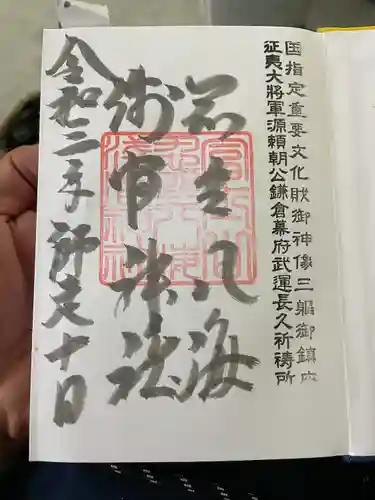 国指定重要文化財御神像三躯御鎮座
征夷大將軍源頼朝公鎌倉幕府武運長久祈祷所
八海
神社
令和二年師走十日
浅間神社